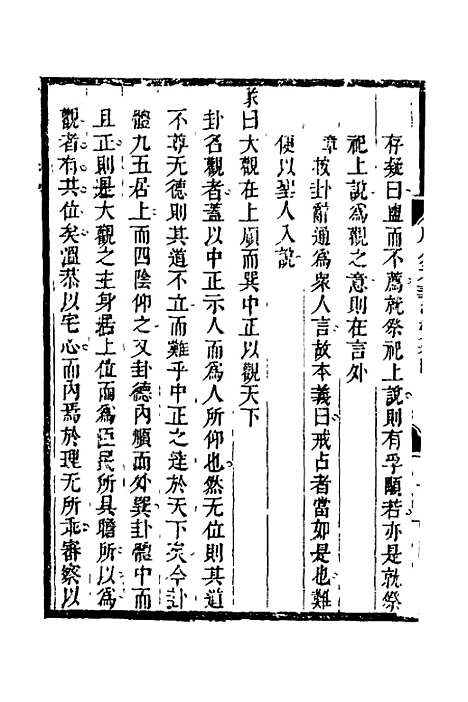 存疑曰盥而不薦就祭祀上說則有孚顒若亦是就祭
祀上說爲觀之意則在言外
章按卦辭通爲衆人言故本義曰戒占者當如是也難
便以聖人入說
彖曰大觀在上順而巽中正以觀天下
卦名觀者蓋以中正示人而爲人所仰也然无位則其道
不尊无德則其道不立而難乎中正之達於天下矣今卦
體九五居上而四陰仰之又卦德內順而外巽卦體中而
且正則是大觀之主身居上位而爲臣民所具瞻所以爲
觀者有其位矣溫恭以宅心而內焉於理无所乖審察以